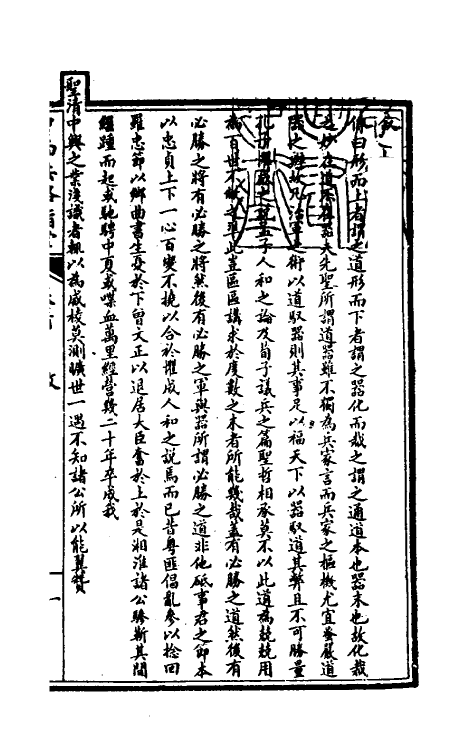 敘
傳曰形而上者謂之道形而下者謂之器化而裁之謂之通道本也器末也故化裁
之妙在道不在器夫先聖所謂道器雖不獨為兵家言而兵家之樞機尤宜謹嚴道
器之辨故凡治軍之術以道馭器則其事足以福天下以器馭道其弊且不可勝量
孔子懼成之訓孟子人和之論及荀子議兵之篇聖哲相承莫不以此道為兢兢用
為百世不
此豈區區講求於度數之末者所能幾哉蓋有必勝之道然後有
必勝之將有必勝之將然後有必勝之軍與器所謂必勝之道非他砥事君之節本
以忠貞上下一心百變不撓以合於懼成人和之說焉而已昔粵匪倡亂參以捻回
羅忠節以鄉曲書生憂於下曾文正以退居大臣奮於上於是湘淮諸公勝斯其間
繼踵而起或馳騁中夏或喋血萬里經營幾二十年卒成我
聖清中興之業淺識者輒以為咸被莫測曠世一遇不知諸公所以能翼贊
一